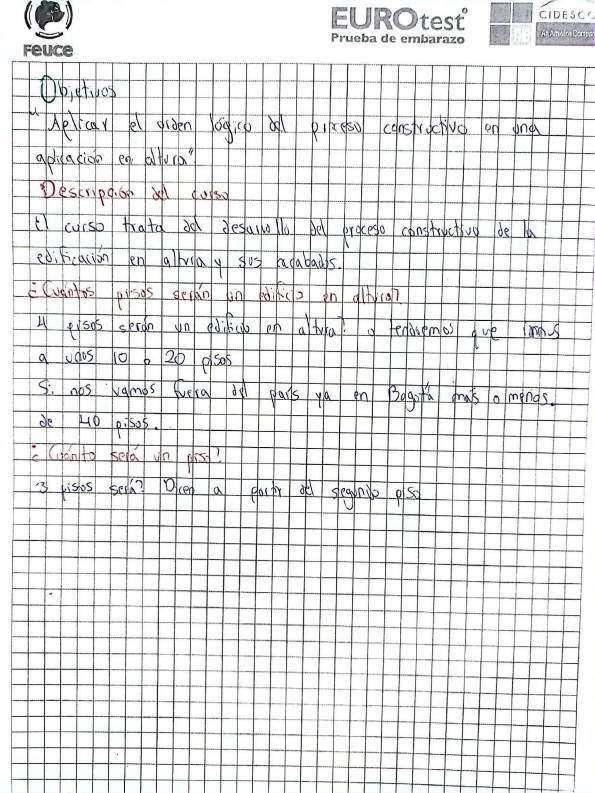 FEUCE
EUROtest
Prueba de embarazo
CIDESCO
Objetivos
"Aplicar el orden lógico del proceso constructivo en una
aplicación en altura"
Descripción del curso
El curso trata del desarrollo del proceso constructivo de la
edificación en altura y sus acabados.
¿Cuántos pisos serán un edificio en altura?
4 pisos serán un edificio en altura? o tendremos que irnos
a unos 10 o 20 pisos
Si nos vamos fuera del país ya en Bogotá más o menos.
de 40 pisos.
¿Cuánto será un piso?
3 pisos será? Dicen a partir del segundo piso